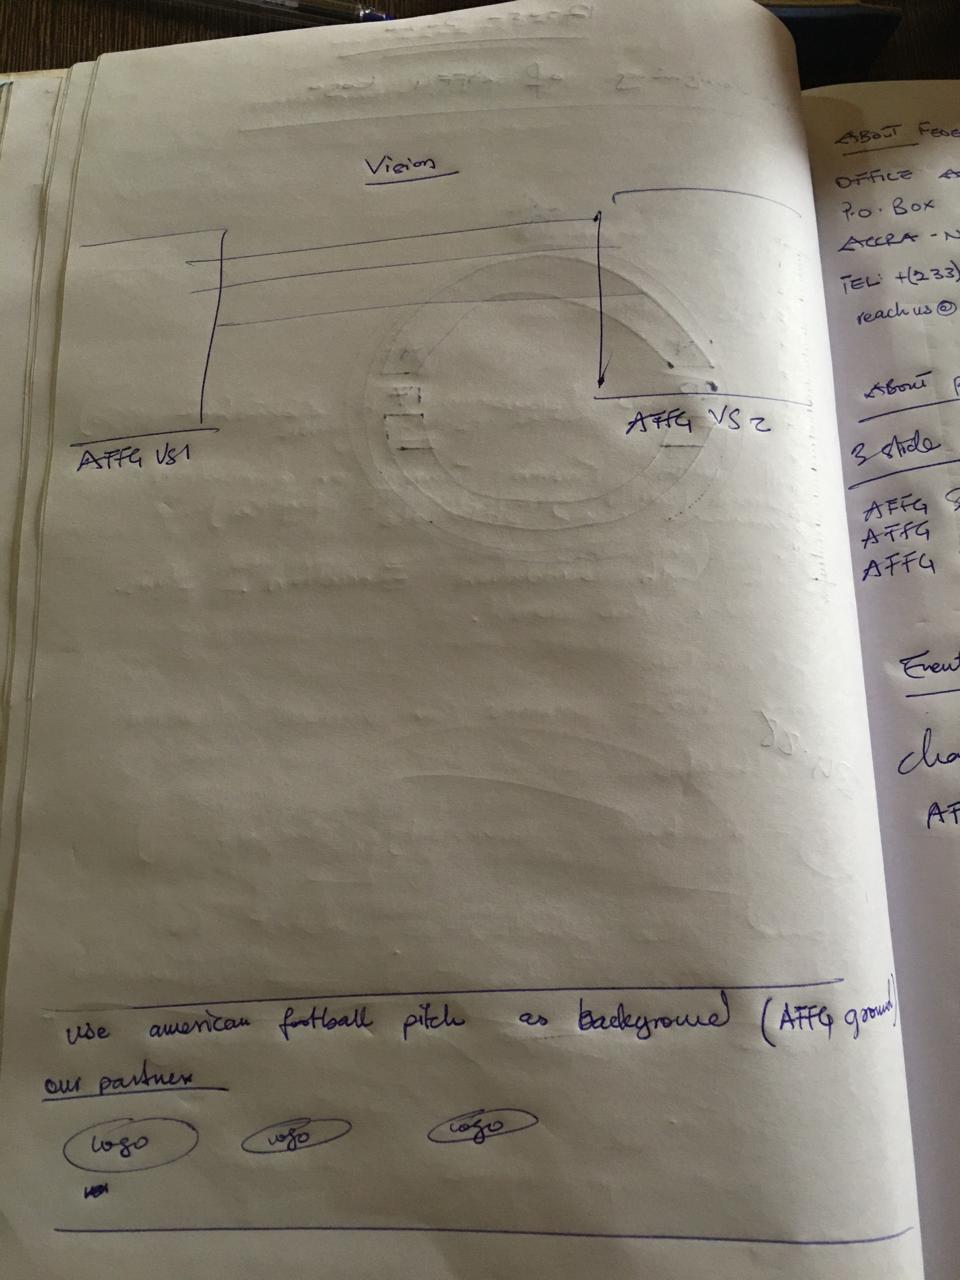 Vision
AFFG VS1
AFFG VS2
use american football pitch as background (AFFG ground)
our partners
Logo Logo Logo
ABOUT FEDE
OFFICE A
P.O. BOX
ACCRA - N
TEL: +(233)
reach us @
About
3 slide
AFFG S
AFFG
AFFG
Event
cha
AF